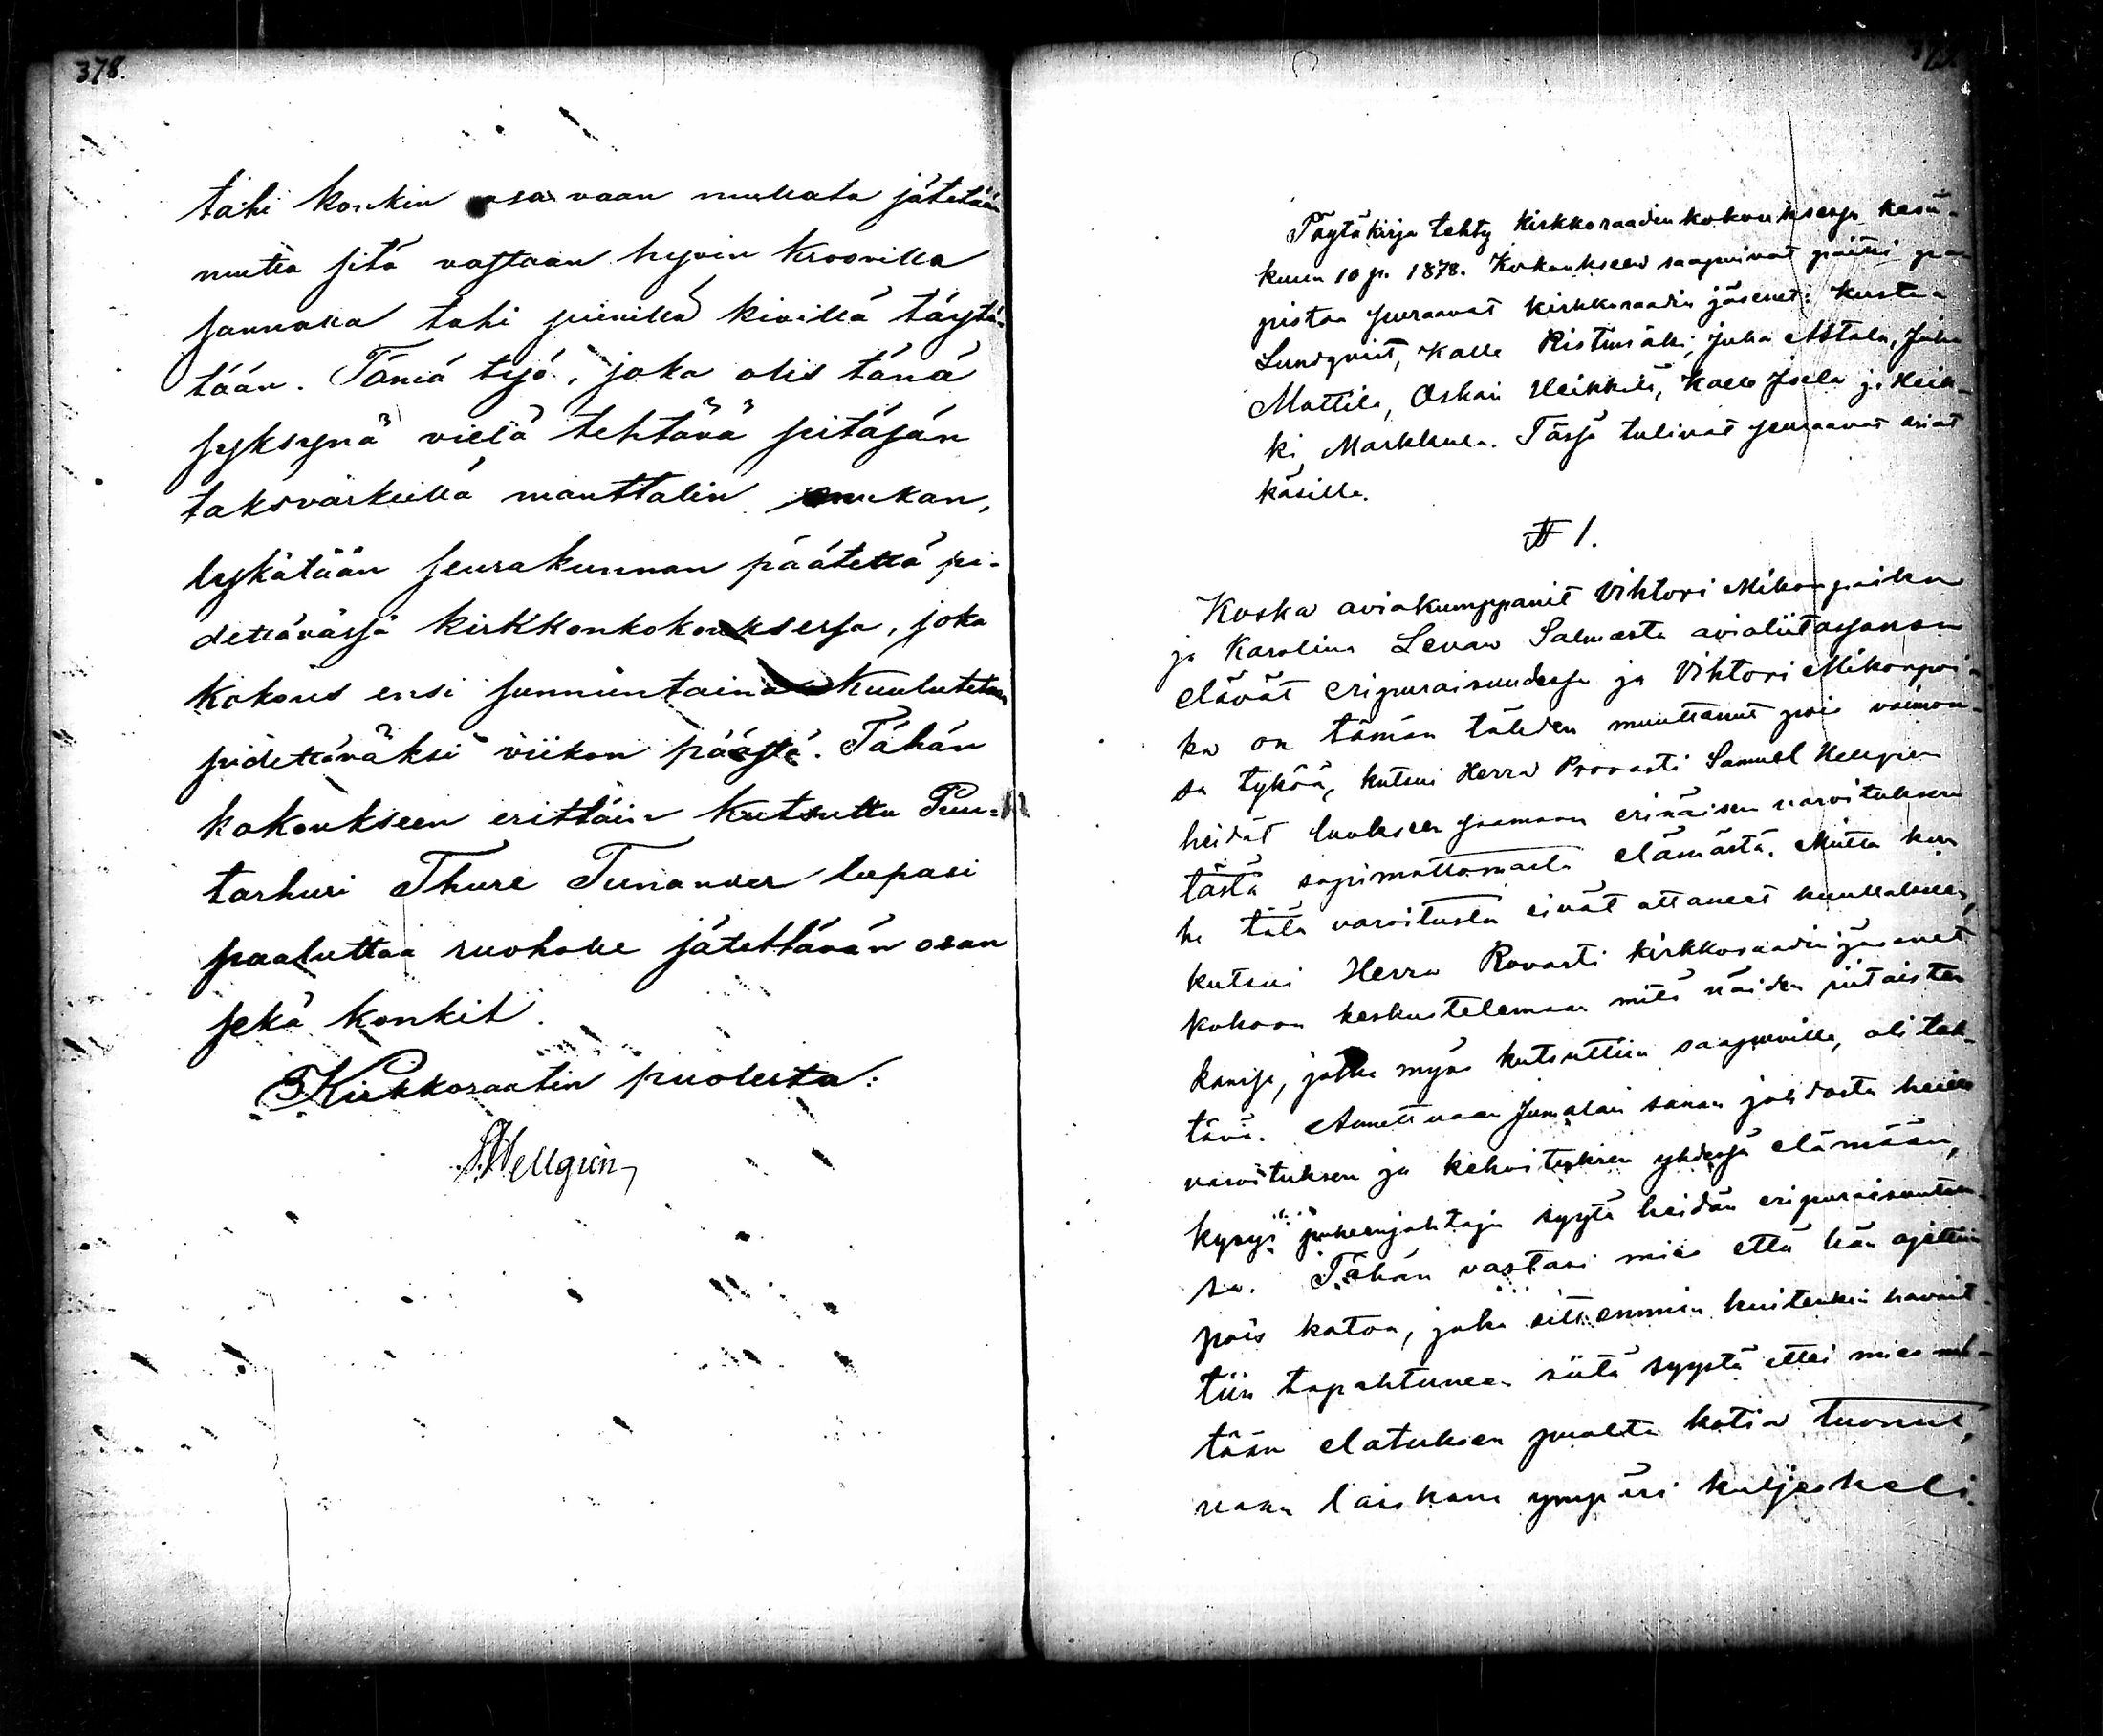 378.
tahi konkin osa vaan mullata jätetään
mutta sitä vastaan hyvin kroovilla
sannalla tahi pienillä kivillä täyte-
tään. Tämä työ, joka olis tänä
syksynä vielä tehtävä pitäjän
taksvärkillä manttalin mukan,
lykätään seurakunnan päätettä pi-
dettävässä kirkkonkokouksessa, joka
kokous ensi sunnuntaina kuulutetaan
pidettäväksi viikon päästä. Tähän
kokoukseen erittäin kutsuttu Puu-
tarhuri Thure Tunander lupasi
paaluttaa ruoholle jätettävän osan
sekä konkit.
Kirkkoraatin puolesta:
S. Hellgrén,
Pöytäkirja tehty Kirkkoraadin kokouksessa kesä-
kuun 10 p. 1878. Kokoukseen saapuivat paitsi pap-
pistaa seuraavat kirkkoraadin jäsenet: Kustaa
Lundqvist, Kalle Ristimäki, Juha Attala, Juha
Mattila, Oskari Heikkilä, Kalle Isela ja Heik-
ki Markkula. Tässä tulivat seuraavat asiat
käsille.
§ 1.
Koska aviakumppanit Vihtori Mikonpoika
ja Karolina Levan Salmesta avioliitassansa
elävät eripuraisuudessa ja Vihtori Mikonpoi-
ka on tämän tähden muuttanut pois vaimon-
sa tyköä, kutsui Herra Provasti Samuel Hellgren
heidät luokseen saamaan erinäisen varoituksen
tästä sopimattomasta elämästä. Mutta kun
he tätä varoitusta eivät ottaneet kuullakseen,
kutsui Herra Rovasti kirkkoraadin jäsenet
kokoon keskustelemaan mitä näiden riitaisten
kanssa, jotka myös kutsuttiin saapuville, oli teh-
tävä. Annettuaan Jumalan sanan johdosta heille
varoituksen ja kehoituksen yhdessä elämään,
kysyi puheenjohtaja syytä heidän eripuraisuuteen-
sa. Tähän vastasi mies että hän ajettiin
pois kotoa, joka sittemmin kuitenkin havait-
tiin tapahtuneen siitä syystä ettei mies mi-
tään elatuksen puolta kotia tuonut,
vaan laiskana ympäri kuljeskeli.